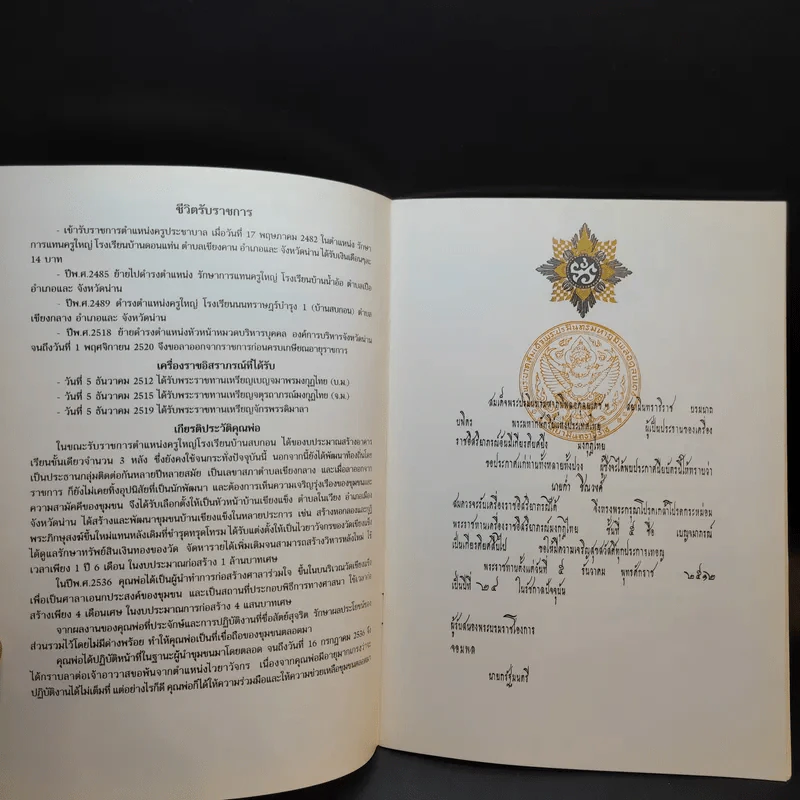 ชีวิตรับราชการ
- เข้ารับราชการตำแหน่งครูประชาบาล เมื่อวันที่ 17 พฤษภาคม 2482 ในตำแหน่ง รักษา
การแทนครูใหญ่ โรงเรียนบ้านดอนแท่น ตำบลเชียงคาน อำเภอและ จังหวัดน่าน ได้รับเงินเดือนๆละ
14 บาท
- ปีพ.ศ.2485 ย้ายไปดำรงตำแหน่ง รักษาการแทนครูใหญ่ โรงเรียนบ้านน้ำอ้อ ตำบล
อำเภอและ จังหวัดน่าน
- ปีพ.ศ.2489 ดำรงตำแหน่งครูใหญ่ โรงเรียนนนทราษฎร์บำรุง 1 (บ้านสบกอน) ตำบล
เชียงกลาง อำเภอและ จังหวัดน่าน
- ปีพ.ศ.2518 ย้ายดำรงตำแหน่งหัวหน้าหมวดบริหารบุคคล องค์การบริหารจังหวัดน่าน
จนถึงวันที่ 1 พฤศจิกายน 2520 จึงขอลาออกจากราชการก่อนครบเกษียณอายุราชการ
เครื่องราชอิสราภรณ์ที่ได้รับ
- วันที่ 5 ธันวาคม 2512 ได้รับพระราชทานเหรียญเบญจมาพรมงกุฎไทย (บ.ม.)
- วันที่ 5 ธันวาคม 2515 ได้รับพระราชทานเหรียญจตุรถาภรณ์มงกุฎไทย (จ.ม.)
- วันที่ 5 ธันวาคม 2519 ได้รับพระราชทานเหรียญจักรพรรดิมาลา
เกียรติประวัติคุณพ่อ
ในขณะรับราชการตำแหน่งครูใหญ่โรงเรียนบ้านสบกอน ได้ของบประมาณสร้างอาคาร
เรียนชั้นเดียวจำนวน 3 หลัง ซึ่งยังคงใช้จนกระทั่งปัจจุบันนี้ นอกจากนี้ยังได้พัฒนาท้องถิ่นโดย
เป็นประธานกลุ่มติดต่อกันหลายปีหลายสมัย เป็นเลขาสภาตำบลเชียงกลาง และเมื่อลาออกจาก
ราชการ ก็ยังไม่เคยทิ้งอุปนิสัยที่เป็นนักพัฒนา และต้องการเห็นความเจริญรุ่งเรืองของชุมชนและ
ความสามัคคีของชุมชน จึงได้รับเลือกตั้งให้เป็นหัวหน้าบ้านเชียงแข็ง ตำบลในเวียง อำเภอเมือง
จังหวัดน่าน ได้สร้างและพัฒนาชุมชนบ้านเชียงแข็งในหลายประการ เช่น สร้างหอกลองและกุฏิ
พระภิกษุสงฆ์ขึ้นใหม่แทนหลังเดิมที่ชำรุดทรุดโทรม ได้รับแต่งตั้งให้เป็นไวยาวัจกรของวัดเชียงแข็ง
ได้ดูแลรักษาทรัพย์สินเงินทองของวัด จัดหารายได้เพิ่มเติมจนสามารถสร้างวิหารหลังใหม่ ใช้
เวลาเพียง 1 ปี 6 เดือน ในงบประมาณก่อสร้าง 1 ล้านบาทเศษ
ในปีพ.ศ.2536 คุณพ่อได้เป็นผู้นำทำการก่อสร้างศาลาร่วมใจ ขึ้นในบริเวณวัดเชียงแข็ง
เพื่อเป็นศาลาเอนกประสงค์ของชุมชน และเป็นสถานที่ประกอบพิธีการทางศาสนา ใช้เวลา
สร้างเพียง 4 เดือนเศษ ในงบประมาณการก่อสร้าง 4 แสนบาทเศษ
จากผลงานของคุณพ่อที่ประจักษ์และการปฏิบัติงานที่ซื่อสัตย์สุจริต รักษาผลประโยชน์ของ
ส่วนรวมไว้โดยไม่มีด่างพร้อย ทำให้คุณพ่อเป็นที่เชื่อถือของชุมชนตลอดมา
คุณพ่อได้ปฏิบัติหน้าที่ในฐานะผู้นำชุมชนมาโดยตลอด จนถึงวันที่ 16 กรกฎาคม 2536
ได้กราบลาต่อเจ้าอาวาสขอพ้นจากตำแหน่งไวยาวัจกร เนื่องจากคุณพ่อมีอายุมาก
ปฏิบัติงานได้ไม่เต็มที่ แต่อย่างไรก็ดี คุณพ่อก็ได้ให้ความร่วมมือและให้ความช่วยเหลือชุมชนตลอดมา
สมเด็จพระปรมินทรมหาภูมิพลอดุลยเดช ฯ สยามินทราธิราช บรมนาถ
บพิตร พระมหากษัตริย์แห่งประเทศไทย ผู้เป็นประธานของเครื่อง
ราชอิสริยาภรณ์อันมีเกียรติยศยิ่ง มงกุฎไทย
ขอประกาศแก่ท่านทั้งหลายทั้งปวง ผู้ซึ่งจะได้พบประกาศนียบัตรนี้ให้ทราบว่า
นายคำ
สมควรจะรับเครื่องราชอิสริยาภรณ์ได้ จึงทรงพระกรุณาโปรดเกล้าโปรดกระหม่อม
พระราชทานเครื่องราชอิสริยาภรณ์มงกุฎไทย ชั้นที่ ๕ ชื่อ เบญจมาภรณ์
เป็นเกียรติยศสืบไป ขอให้มีความเจริญสุขสวัสดิ์ทุกประการเทอญ
พระราชทานตั้งแต่วันที่ ๕ ธันวาคม พุทธศักราช ๒๕๑๒
เป็นปีที่ ๒๔ ในรัชกาลปัจจุบัน
ผู้รับสนองพระบรมราชโองการ
จอมพล
นายกรัฐมนตรี